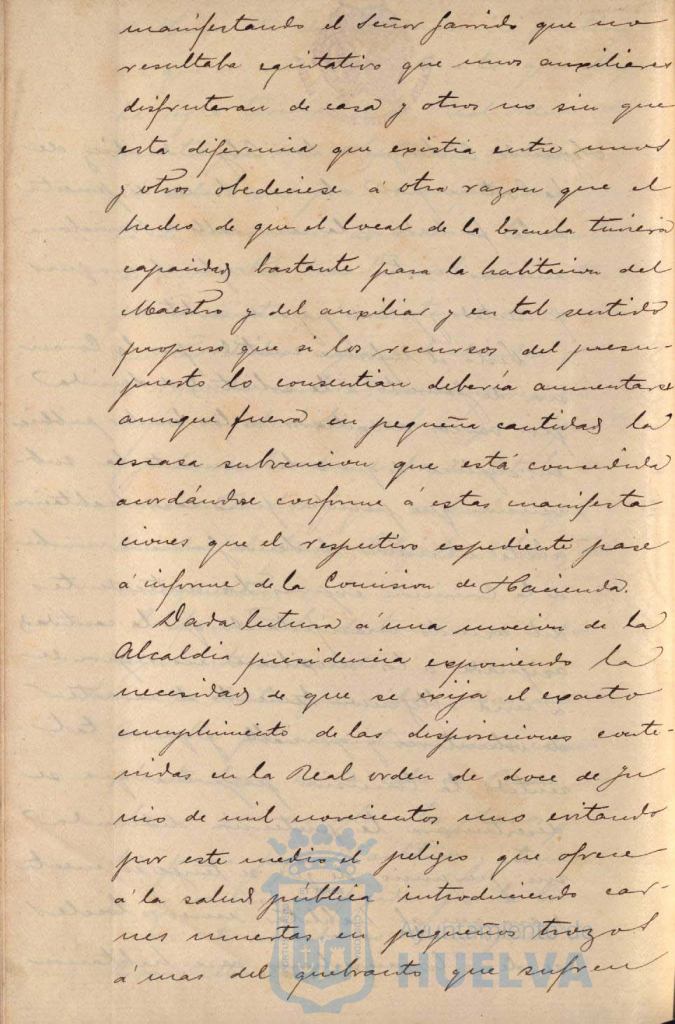 manifestando el Señor Garrido que no
resultaba equitativo que unos auxiliares
disfrutaran de casa y otros no sin que
esta diferencia que existia entre unos
y otros obedeciese á otra razon que el
hecho de que el local de la Escuela tuviera
capacidad bastante para la habitacion del
Maestro y del auxiliar y en tal sentido
propuso que si los recursos del presu-
puesto lo consentian debería aumentarse
aunque fuera en pequeña cantidad la
escasa subvencion que está concedida
acordándose conforme á estas manifesta
ciones que el respectivo expediente pase
á informe de la Comision de Hacienda.
Dada lectura á una mocion de la
Alcaldia presidencia exponiendo la
necesidad de que se exija el exacto
cumplimiento de las disposiciones conte-
nidas en la Real orden de doce de Ju
nio de mil novecientos uno evitando
por este medio el peligro que ofrece
á la salud pública introduciendo car-
nes muertas en pequeños trozos
á mas del quebranto que sufren
HUELVA